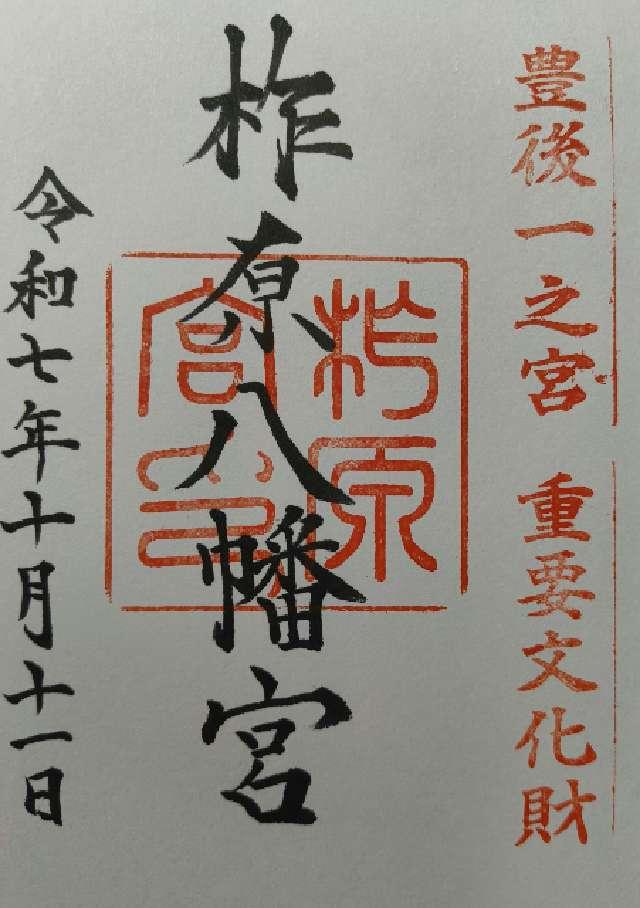 豊後一之宮 重要文化財
柞原八幡宮
柞原
宮印
令和七年十月十一日